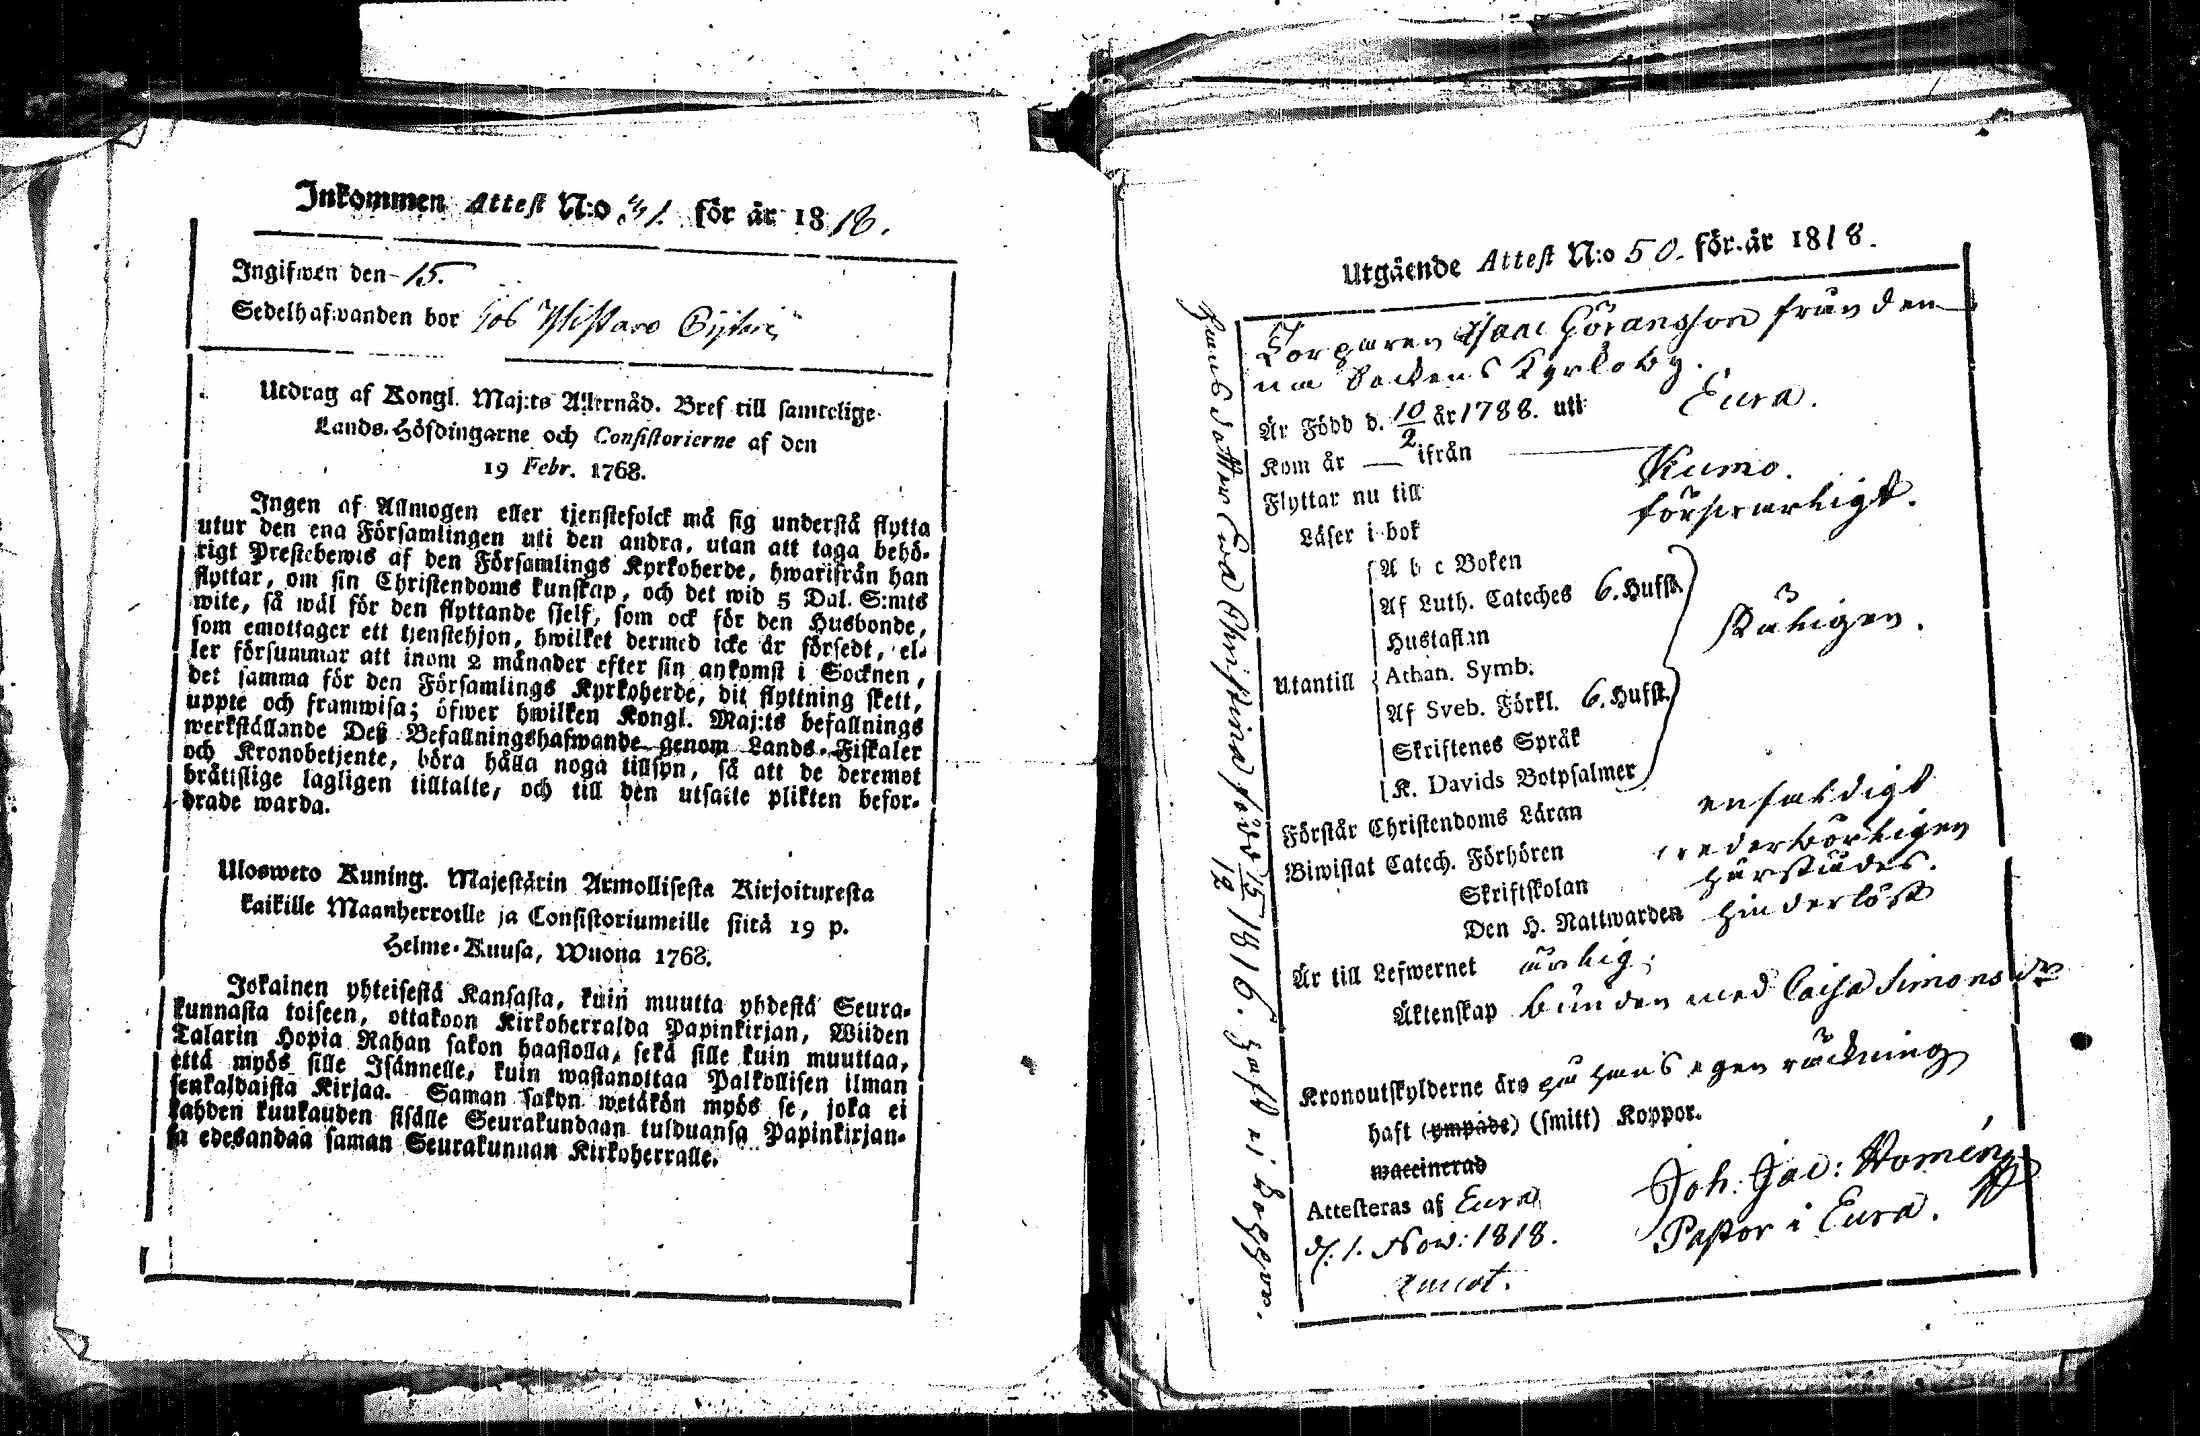 Inkommen Attest N:o 31. för år 1818.
Ingifwen den 15.
Sedelhafwanden bor hos
Utdrag af Kongl. Maj:ts Allernåd. Bref till samtelige
Lands-Höfdingarne och Consistorierne af den
19 Febr. 1768.
Ingen af Allmogen eller tjenstefolck må sig understå flytta
utur den ena Församlingen uti den andra, utan att taga behö-
rigt Prestebewis af den Församlings Kyrkoherde, hwarifrån han
flyttar, om sin Christendoms kunskap, och det wid 5 Dal. S:mts
wite, så wäl för den flyttande sjelf, som ock för den Husbonde,
som emottager ett tjenstehjon, hwilket dermed icke är försedt, el-
ler försummar att inom 2 månader efter sin ankomst i Socknen,
det samma för den Församlings Kyrkoherde, dit flyttning skett,
uppte och framwisa; öfwer hwilken Kongl. Maj:ts befallnings
werkställande Deß Befallningshafwande genom Lands-Fiskaler
och Kronobetjente, böra hålla noga tillsyn, så att de deremot
brätislige lagligen tilltalte, och till den utsatte plikten befor-
drade warda.
Ulosweto Kuning. Majestätin Armollisesta Kirjoituxesta
kaikille Maanherroille ja Consistoriumeille siitä 19 p.
Helme-Kuusa, Wuona 1768.
Jokainen yhteisestä Kansasta, kuin muutta yhdestä Seura-
kunnasta toiseen, ottakoon Kirkoherralda Papinkirjan, Wiiden
Talarin Hopia Rahan sakon haastolla, sekä sille kuin muuttaa,
että myös sille Isännelle, kuin wastanottaa Palkollisen ilman
senkaldaista Kirjaa. Saman sakon wetäkön myös se, joka ei
kahden kuukauden sisälle Seurakundaan tulduansa Papinkirjan-
sa edesandaa saman Seurakunnan Kirkoherralle.
Utgående Attest N:o 50. för år 1818.
Torparen Isaac Göransson från den
na Sockens Kyrkoby.
Är Född d. 10/2 år 1788. uti Eura.
Kom år — ifrån —
Flyttar nu till Kumo.
Läser i bok försvarligt.
Utantill
A b c Boken
Af Luth. Cateches 6. Hufst.
Hustaflan
Athan. Symb.
Af Sveb. Förkl. 6. Hufst.
Skriftenes Språk
K. Davids Botpsalmer
Förstår Christendoms Läran enfaldigt
Biwistat Catech. Förhören wederbörligen
Skriftskolan härstädes.
Den H. Nattwarden hinderlöst
Är till Lefwernet ärlig.
Äktenskap bunden med Caisa Simonsdr
Kronoutskylderne äro på hans egen räckning
haft (ympade) (smitt) Koppor.
waccinerad
Attesteras af Eura
d. 1. Nov: 1818.
Joh: Jac:
Pastor i Eura.
hans dotter Eva Christina född 15/12 1816. haft ei koppor.